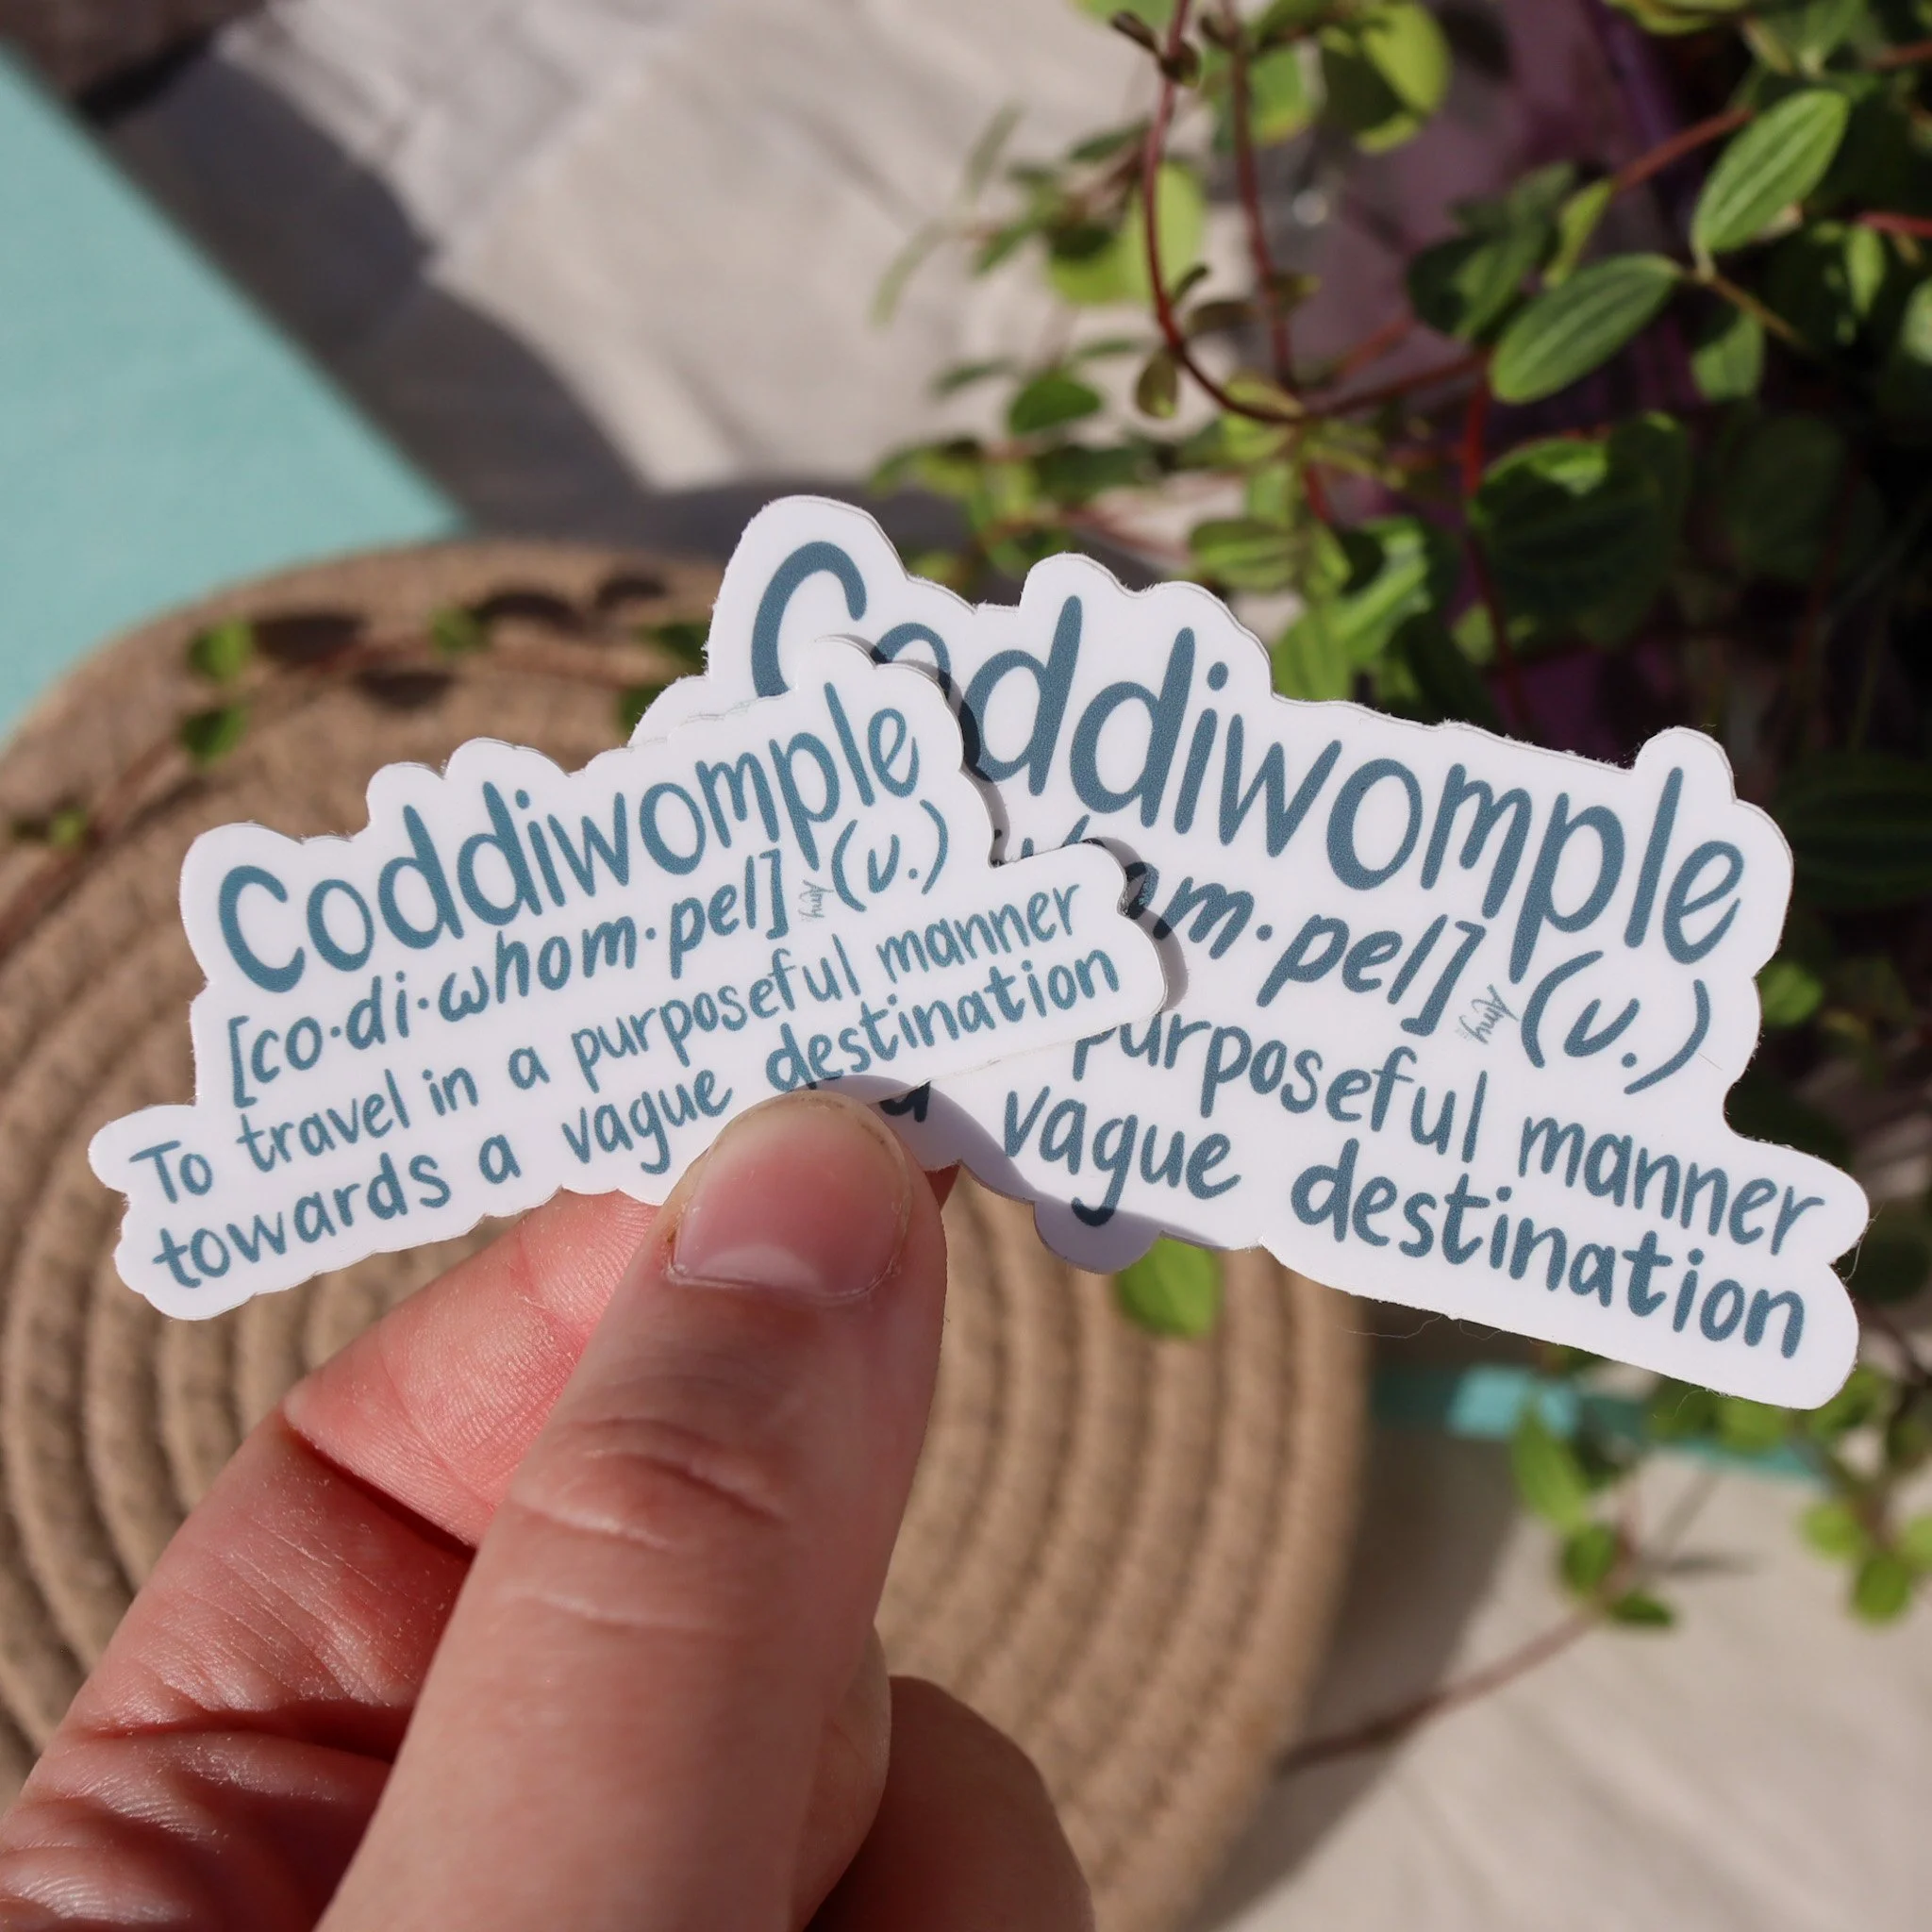 Coddiwomple
[co·di·whom·pel] Amy (v.)
To travel in a purposeful manner
towards a vague destination
Coddiwomple
whom·pel] Amy (v.)
purposeful manner
a vague destination